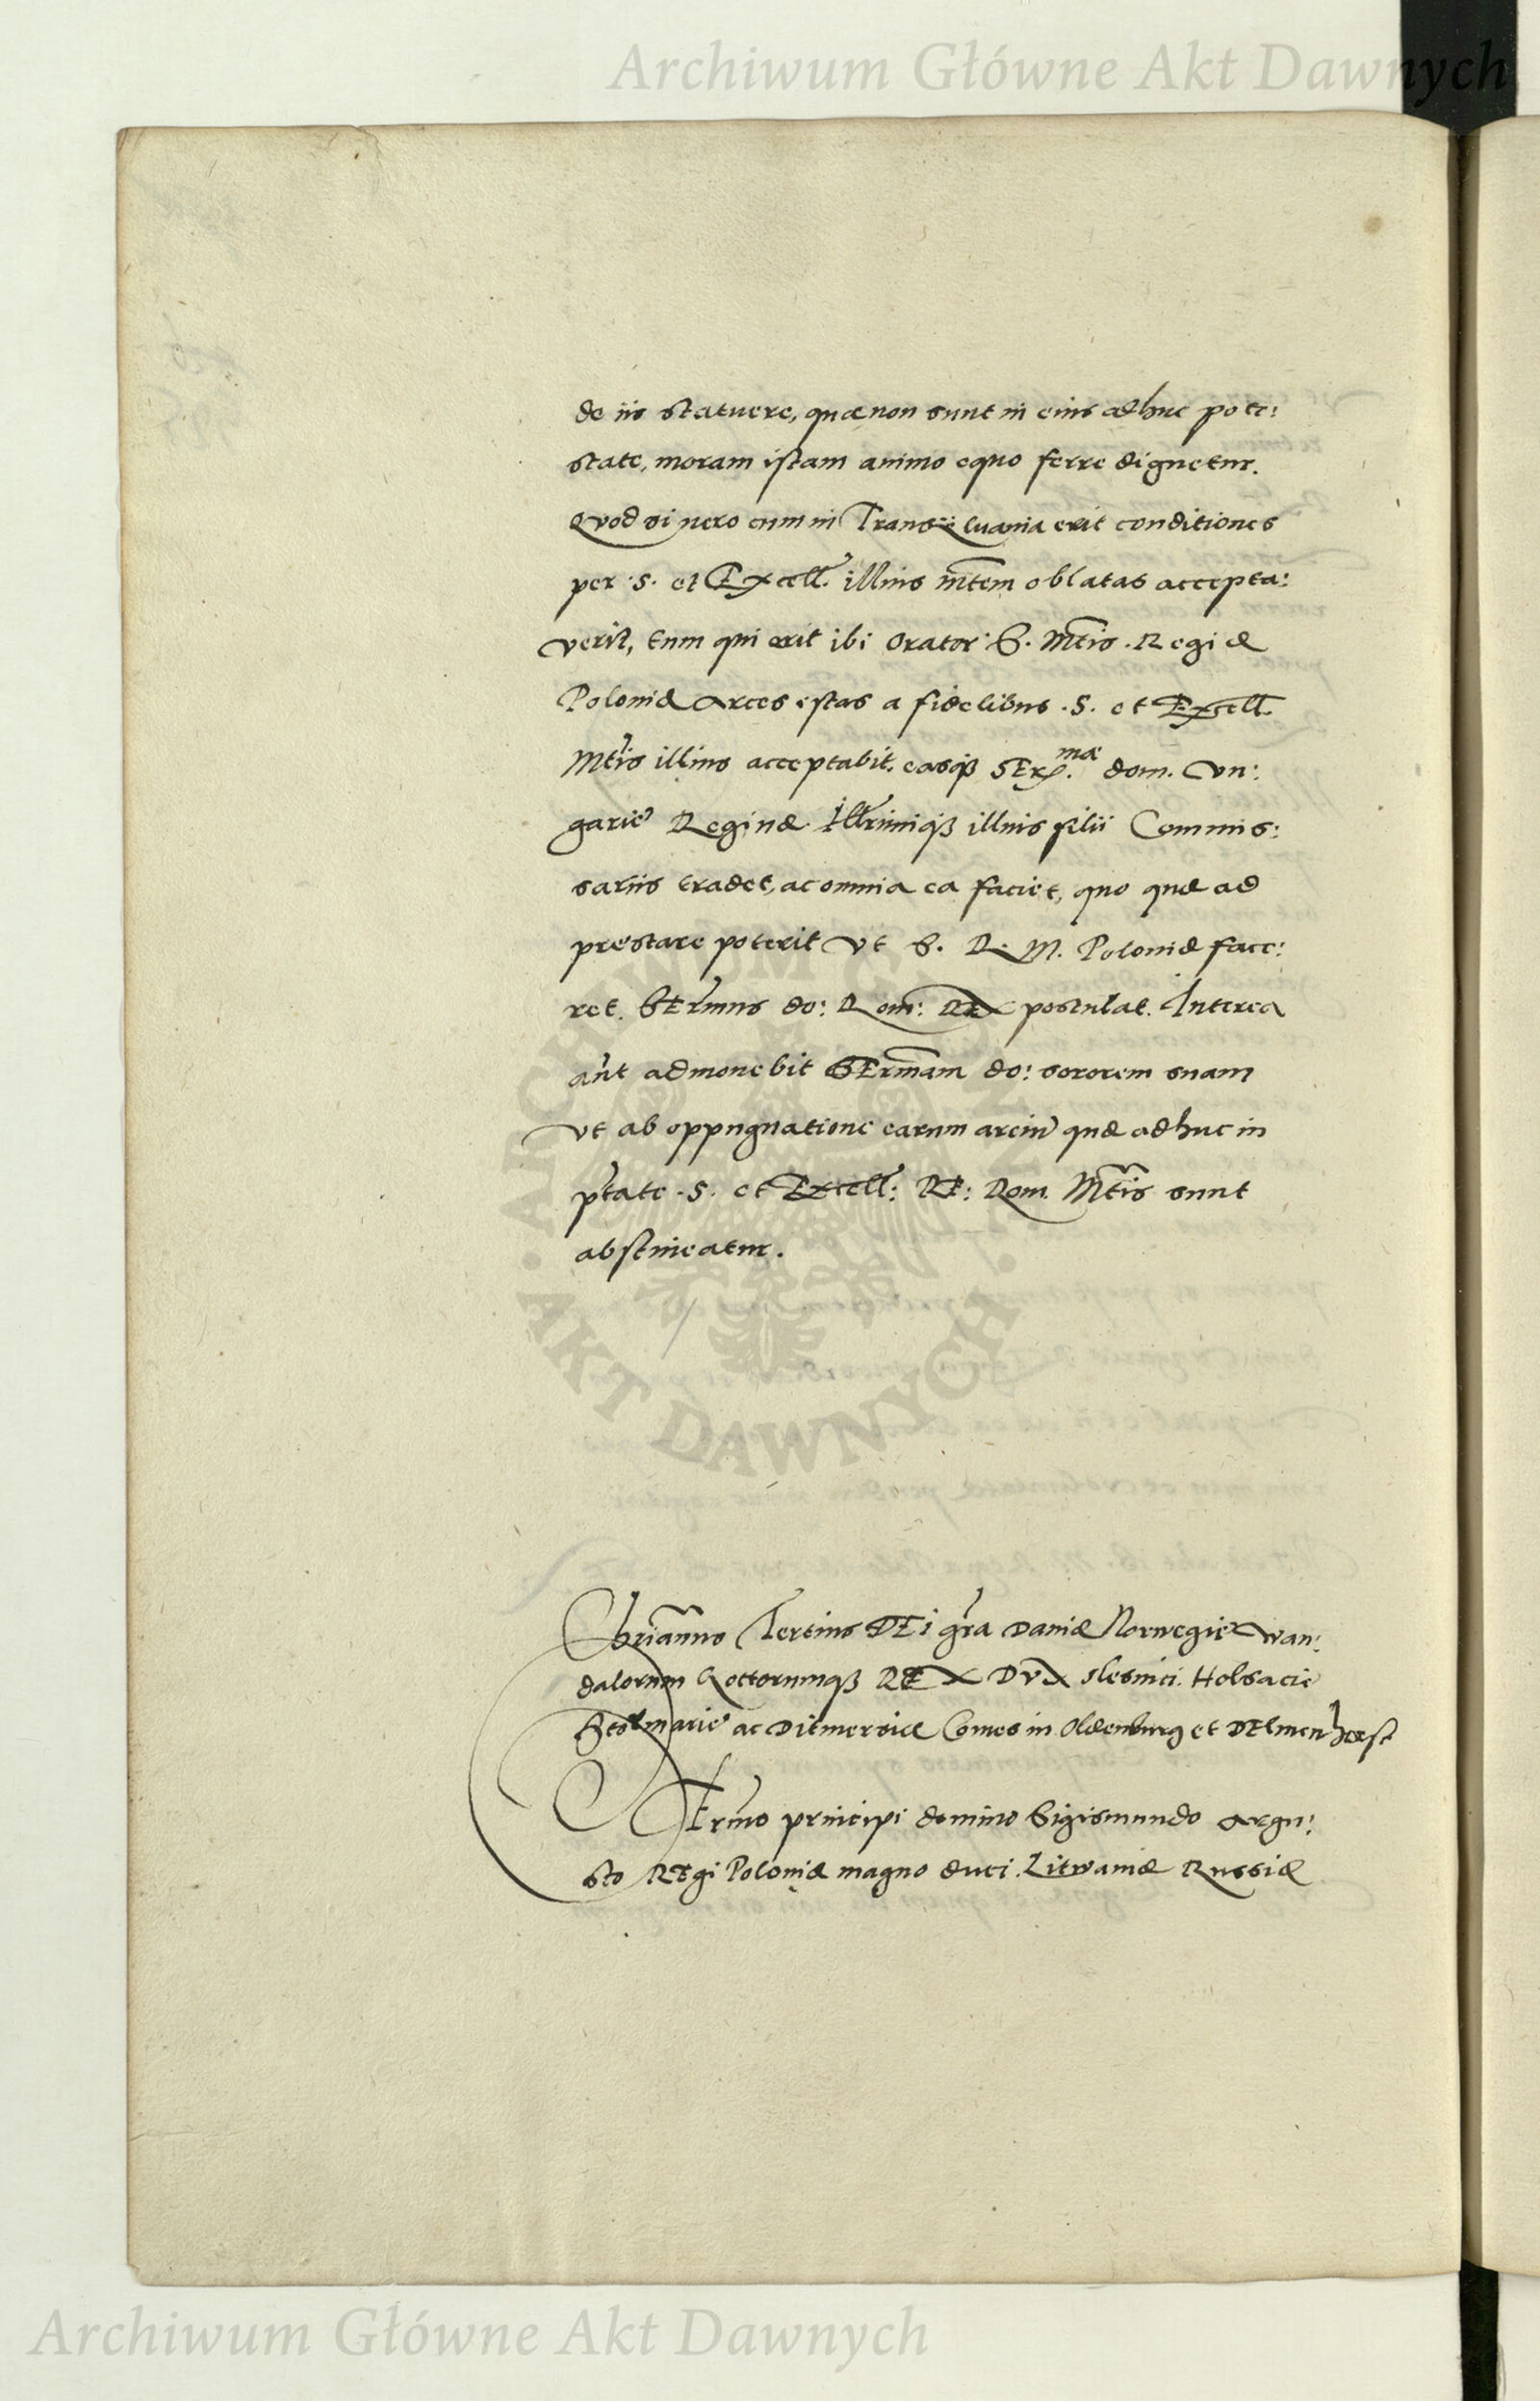 Archiwum Główne Akt Dawnych
de iis statuere, quæ non sunt in eius adhuc pote:
state, moram istam animo equo ferre dignetur.
Quod si uero cum in Transsiluania erit conditiones
per S. et Excell. illius mtem oblatas accepta:
verit, tum qui erit ibi Orator S. Mtis. Regiæ
Poloniæ Arces istas a fidelibus .S. et Excell.
Mtis illius acceptabit, easqȝ SEr.mæ dom. Vn:
garie Reginæ Illrimiqȝ illius filii Commis:
sariis tradet, ac omnia ea faciet, quo quæ ad
prestare poterit Vt S. R. M. Poloniæ face:
ret. SErmus do: Rom: REX postulat. Interea
aut admonebit SErmam do: sororem suam
Vt ab oppugnatione earum arciu quæ adhuc in
ptate .S. et Excell: RE: Rom. Mtis sunt
abstineatur.
ARCHIWUM GŁÓWNE AKT DAWNYCH
Chrianus Tertius DEi gra Daniæ Norwegie Wan:
dalorum Gottorumqȝ REX DUX Slesuici. Holsacie
Stormarie ac Ditmersiæ Comes in Oldenburg et DElmenhorst
SErmo principi domino Sigismundo Augu:
sto REgi Poloniæ magno duci Litwaniæ Russiæ
Archiwum Główne Akt Dawnych